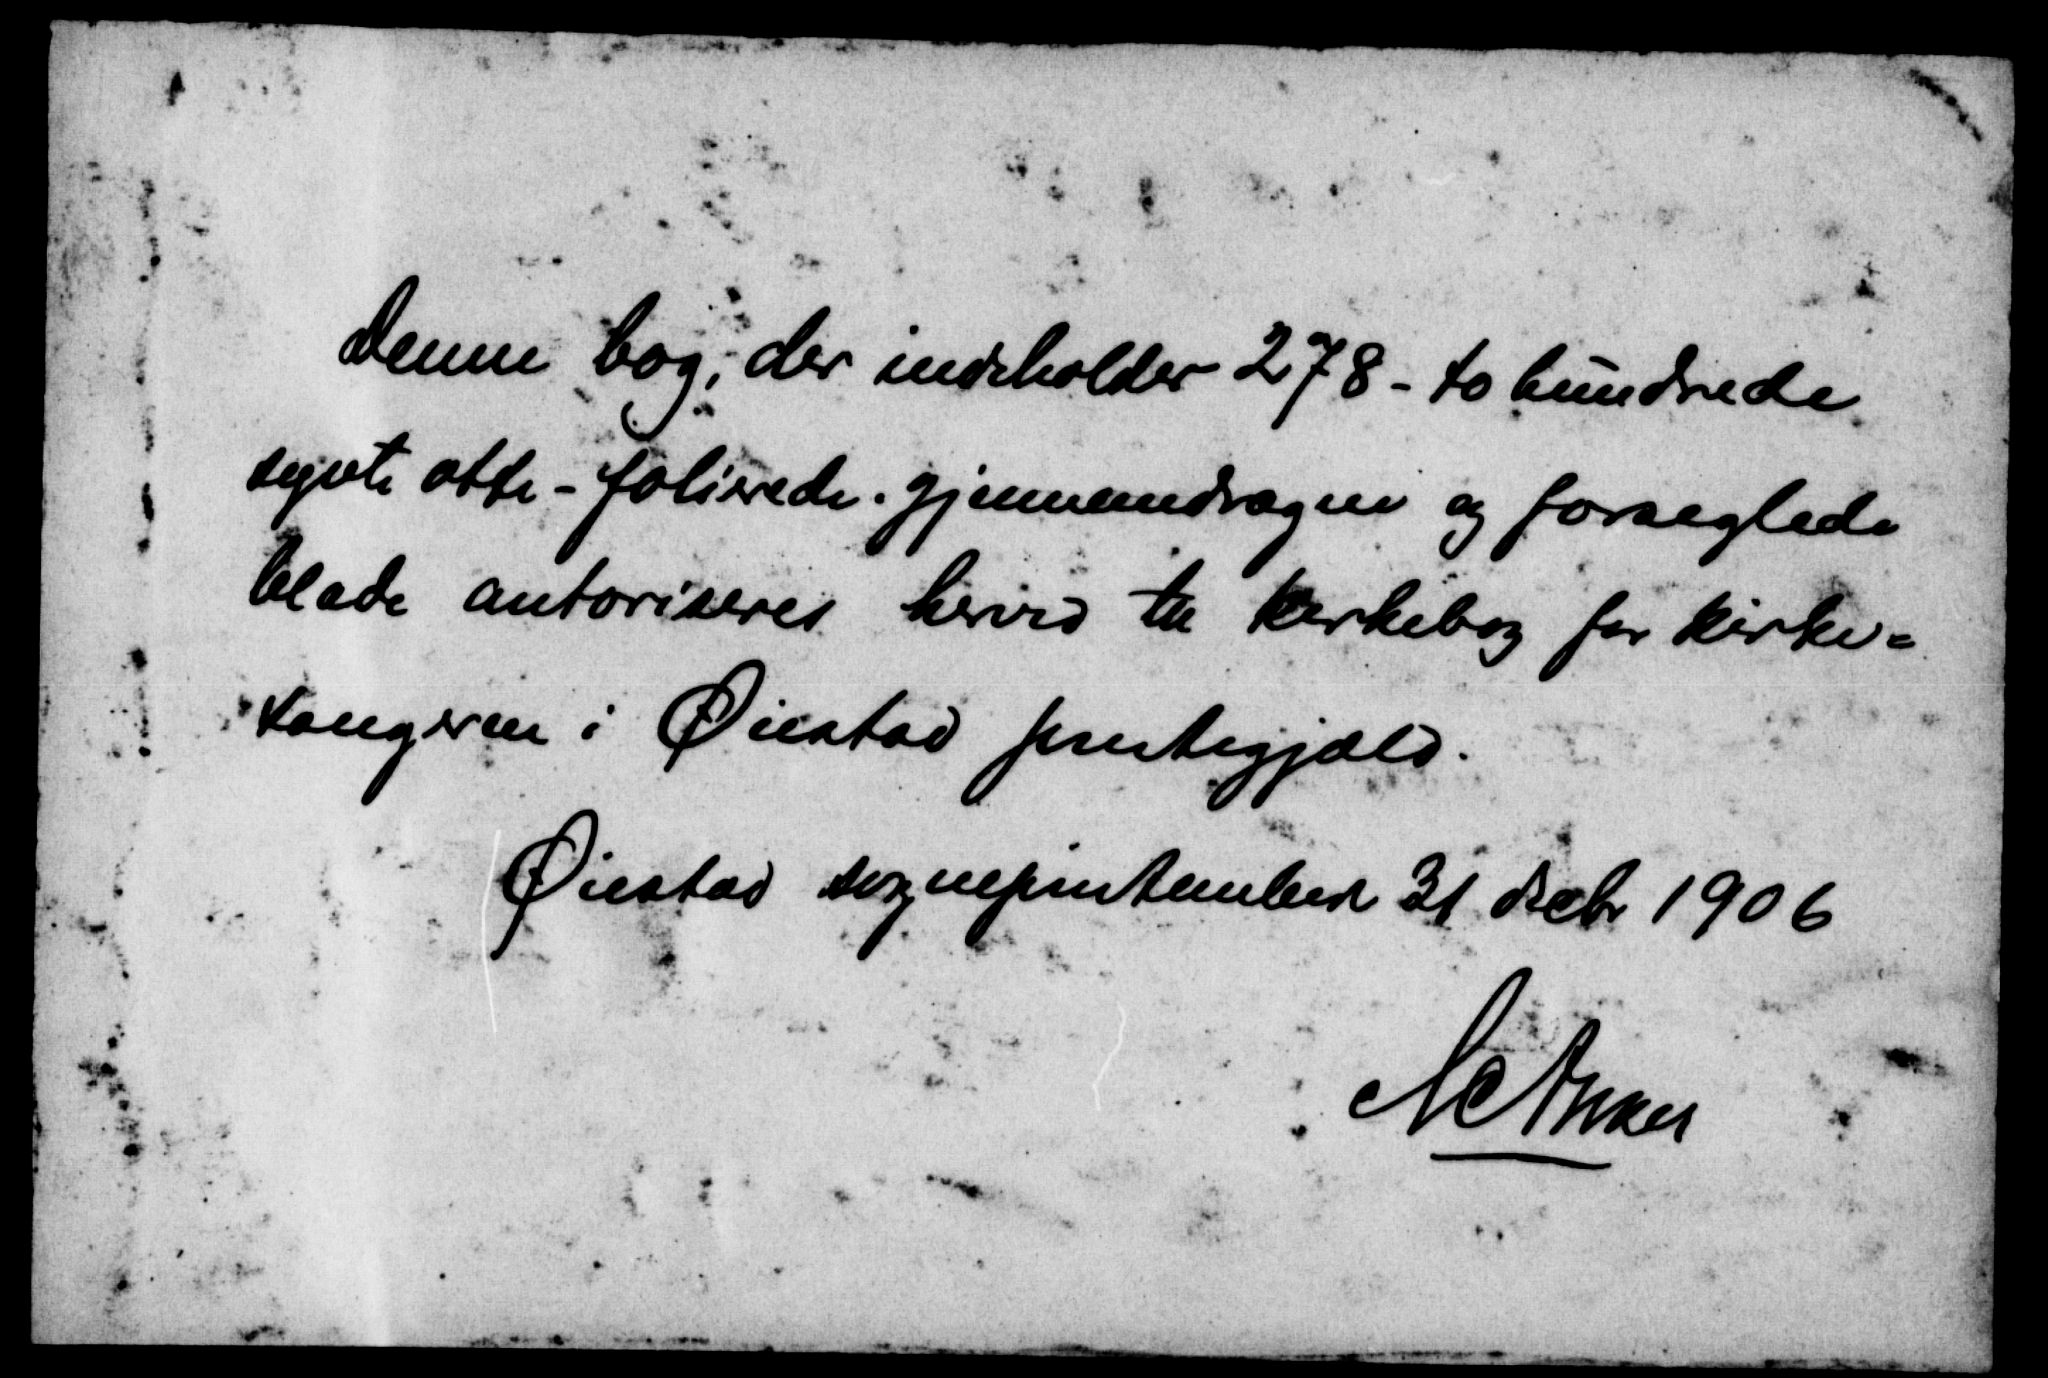 Denne bog, der indeholder 278 - to hundrede
sytti otte - folierede. gjennemdragne og forseglede
blade autoriseres herved til kirkebog for kirke=
sangeren i Øiestad prestegjæld.
Øiestad sogneprestembed 31 decbr 1906